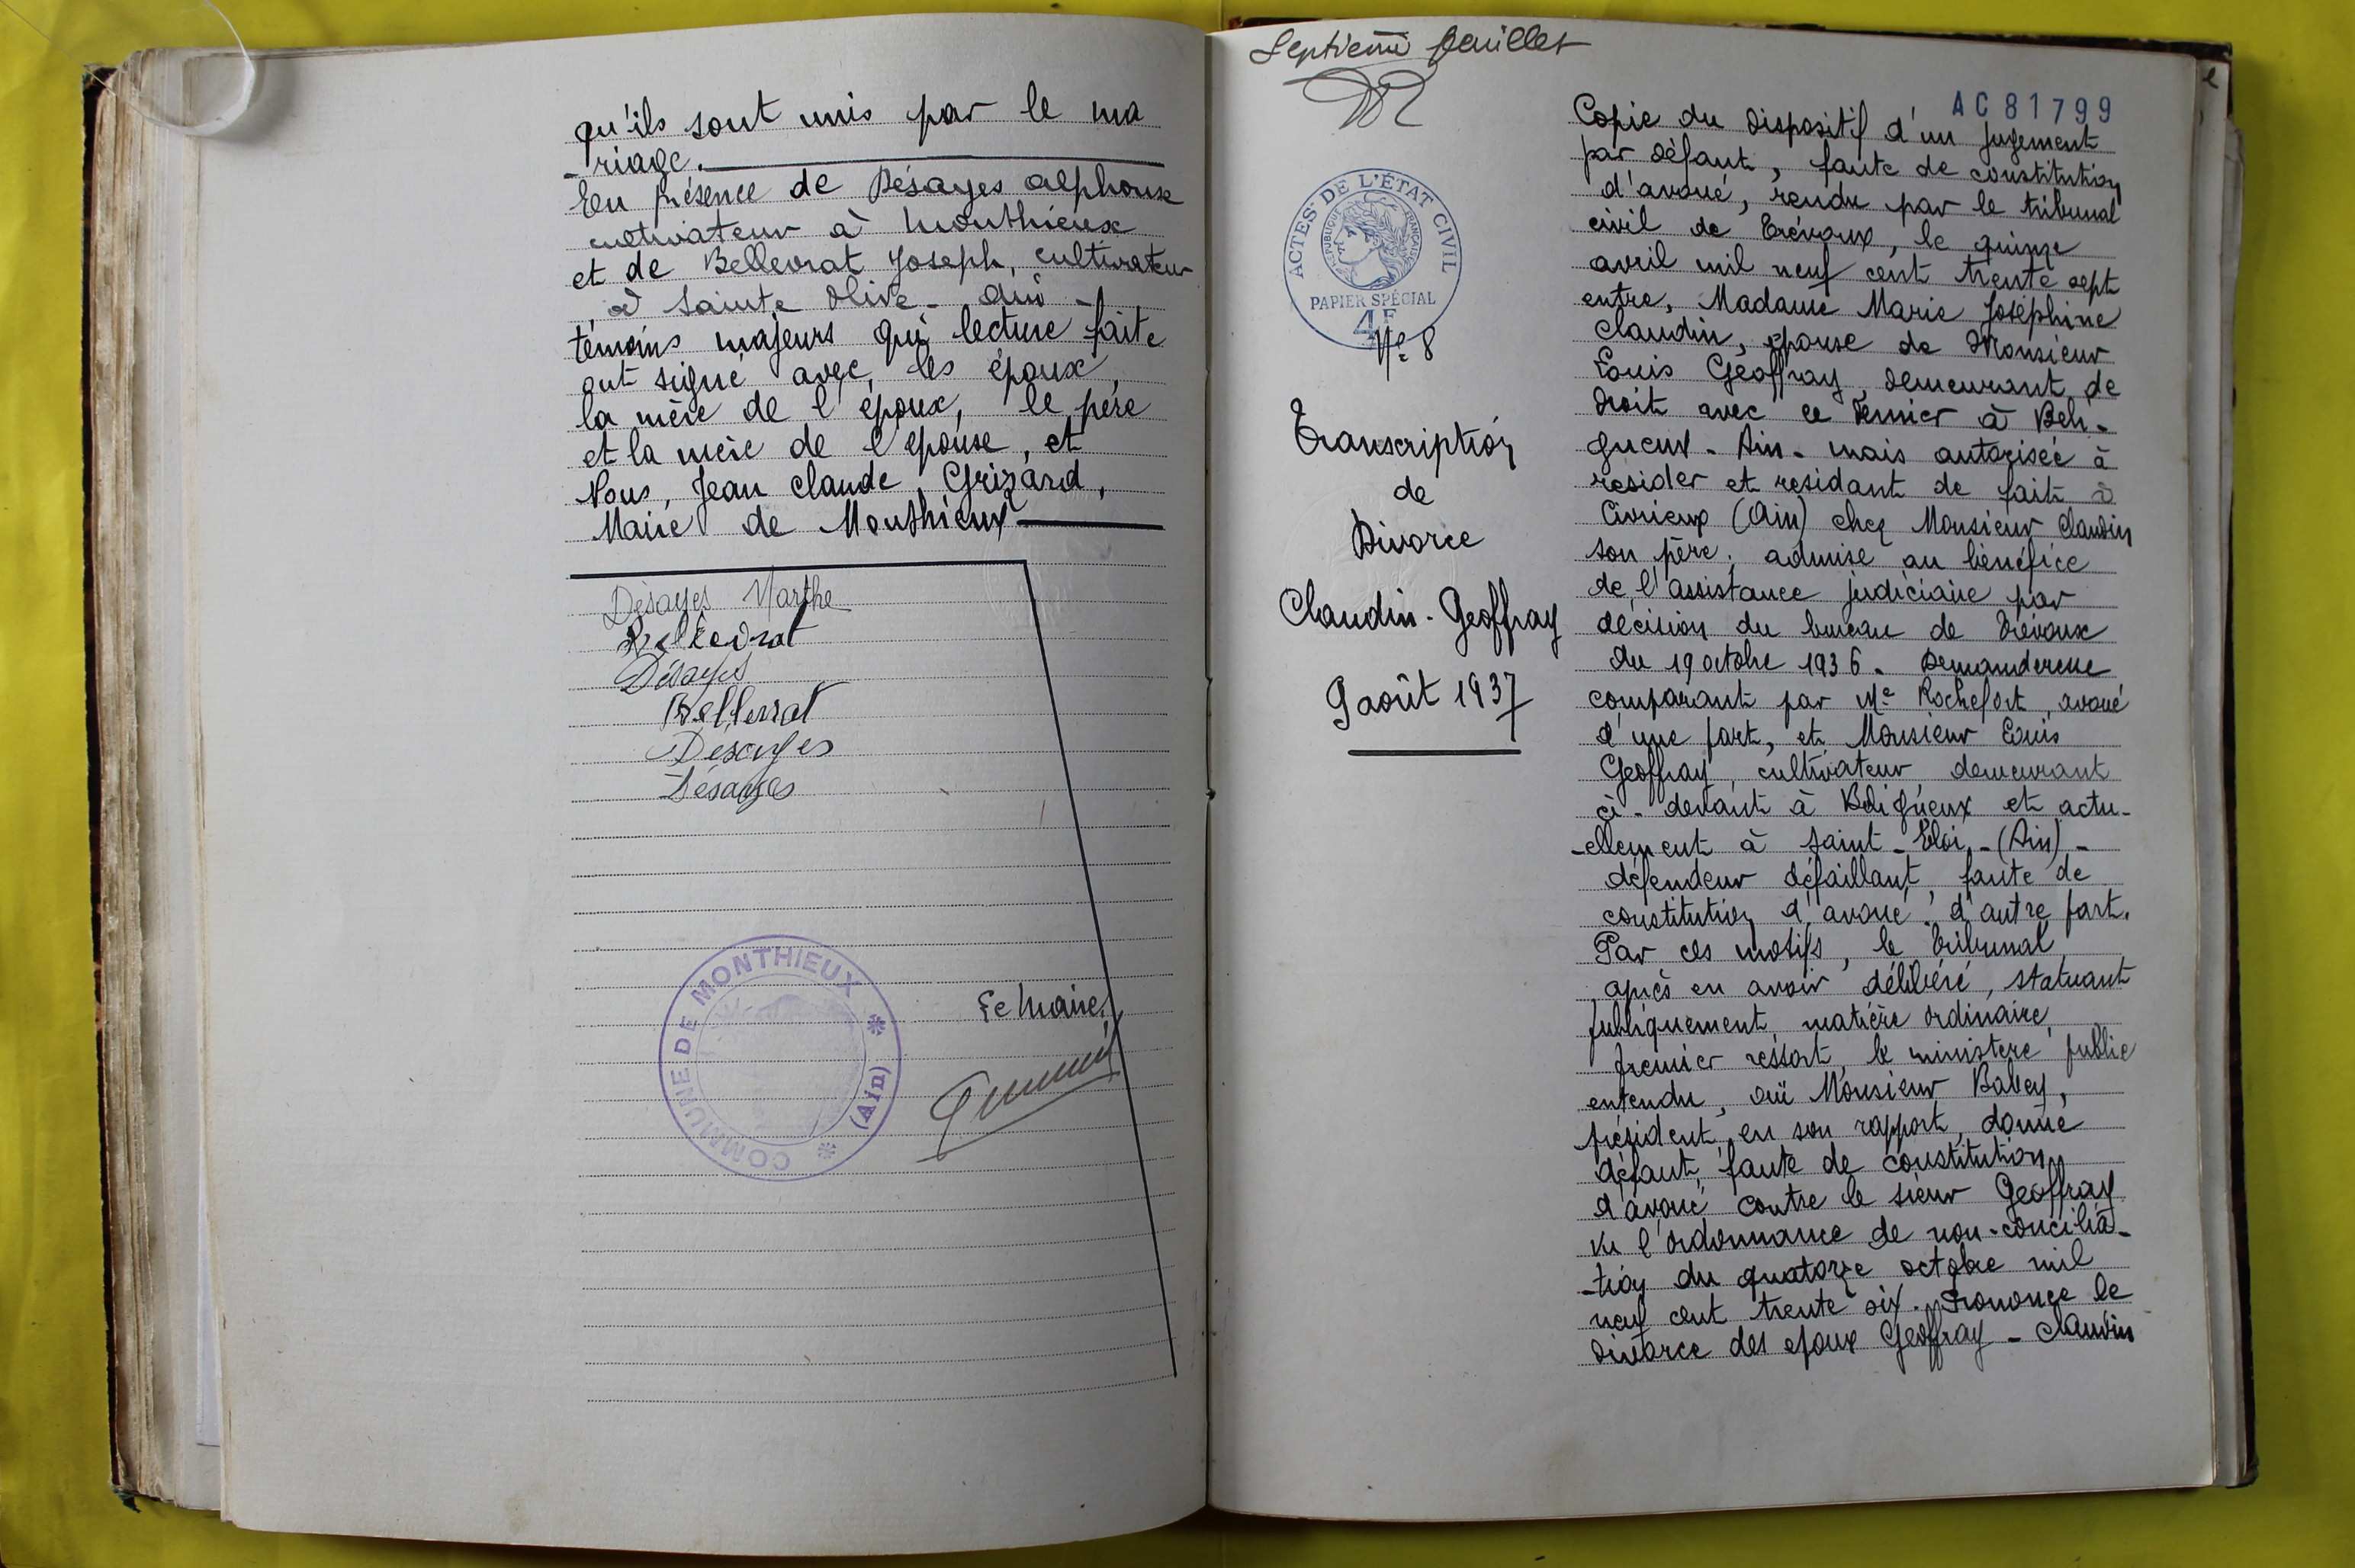 qu'ils sont unis par le ma
-riage.
En présence de Désayes alphonse
cultivateur à Monthieux
et de Bellevrat Joseph, cultivateur
à Sainte Olive - Ain -
témoins majeurs qui lecture faite
ont signé avec les époux,
la mère de l'époux, le père
et la mère de l'épouse, et
Nous, Jean Claude Grizard,
Maire de Monthieux
Désayes Marthe
Bellevrat
Désayes
Bellevrat
Désayes
Désayes
COMMUNE DE MONTHIEUX
(Ain)
Le Maire,
Septième feuillet
ACTES DE L'ÉTAT CIVIL
RÉPUBLIQUE FRANÇAISE
PAPIER SPÉCIAL
4F
N° 8
Transcription
de
Divorce
Claudin - Geoffray
9 août 1937
AC81799
Copie du dispositif d'un jugement
par défaut, faute de constitution
d'avoué, rendu par le tribunal
civil de Trévoux, le quinze
avril mil neuf cent trente sept
entre, Madame Marie Joséphine
Claudin, épouse de Monsieur
Louis Geoffray, demeurant de
droit avec ce dernier à Beli-
gneux - Ain - mais autorisée à
resider et residant de fait à
Civrieux (Ain) chez Monsieur Claudin
son père, admise au bénéfice
de l'assistance judiciaire par
décision du bureau de Trévoux
du 19 octobre 1936 - Demanderesse
comparant par Me Rochefort, avoué
d'une part, et Monsieur Louis
Geoffray, cultivateur demeurant
ci-devant à Béligneux et actu-
-ellement à Saint-Eloi - (Ain) -
défendeur défaillant, faute de
constitution d'avoué, d'autre part.
Par ces motifs, le tribunal
après en avoir délibéré, statuant
publiquement, matière ordinaire,
premier ressort, le ministère public
entendu, ouï Monsieur Babey,
président en son rapport, donne
défaut, faute de constitution
d'avoué contre le sieur Geoffray
vu l'ordonnance de non-concilia-
-tion du quatorze octobre mil
neuf cent trente six. Prononce le
divorce des epoux Geoffray - Claudin